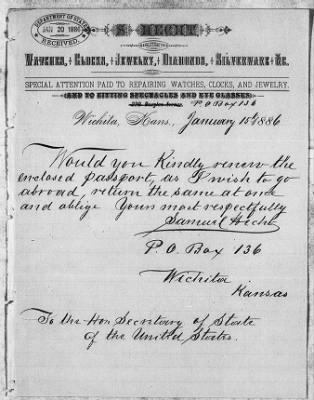 DEPARTMENT OF STATE
JAN 20 1886
RECEIVED.
S. HECHT
WATCHES, CLOCKS, JEWELRY, DIAMONDS, SILVERWARE &c.
SPECIAL ATTENTION PAID TO REPAIRING WATCHES, CLOCKS, AND JEWELRY.
(AND TO FITTING SPECTACLES AND EYE GLASSES)
Douglas Avenue. P. O Box 136
Wichita, Kans., January 15th 1886
Would you Kindly renew the
enclosed passport, as I wish to go
abroad, return the same at once
and oblige Yours most respectfully
Samuel Hecht
P. O. Box 136
Wichita
Kansas
To the Hon Secretary of State
of the United States.